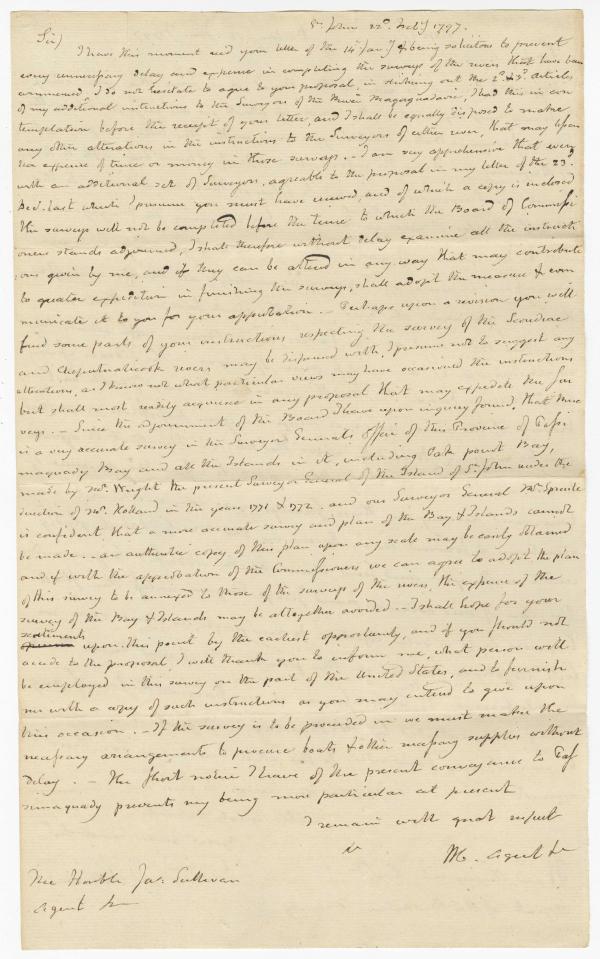 St. John 22d. Feb'y 1797.
Sir)
I have this moment recd your letter of the 14th Jan'y & being solicitous to prevent
every unnecessary delay and expence in completing the surveys of the rivers that have been
commenced, I do not hesitate to agree to your proposal, in striking out the 2d. & 3d. articles
of my additional instructions to the Surveyors of the River Magaguadavic, I had this in con
templation before the receipt of your letter, and I shall be equally disposed to make
any other alterations in the instructions to the Surveyors of either river, that may lessen
the expence of time or money in these surveys. - I am very apprehensive that even
with an additional set of Surveyors, agreable to the proposal in my letter of the 23d.
Decr. last which I presume you must have received, and of which a copy is inclosed
the surveys will not be completed before the time to which the Board of Commissi
oners stands adjourned, I shall therefore without delay examine all the instructi
ons given by me, and if they can be altered in any way that may contribute
to greater expedition in finishing the surveys, shall adopt the measure & com
municate it to you for your approbation. - Perhaps upon a revision you will
find some parts of your instructions respecting the survey of the Scoudiac
and Cheputnaticook rivers may be dispensed with, I presume not to suggest any
alterations, as I know not what particular views may have occasioned the instructions
but shall most readily acquiesce in any proposal that may expedite the sur
veys. - Since the adjournment of the Board I have upon inquiry found, that there
is a very accurate survey in the Surveyor Generals Office of this Province of Passa
maquady Bay and all the Islands in it, including Oak point Bay,
made by Mr. Wright the present Surveyor General of the Island of St. John under the
direction of Mr. Holland in the years 1771 & 1772. and our Surveyor General Mr. Sproule
is confident, that a more accurate survey and plan of the Bay & Islands cannot
be made. - an authentic copy of this plan upon any scale may be easily obtained
and if with the approbation of the Commissioners we can agree to adopt the plan
of this survey to be annexed to those of the surveys of the rivers, the expence of the
survey of the Bay & Islands may be altogether avoided. - I shall hope for your
sentiments
upon this point by the earliest opportunity, and if you should not
accede to the proposal, I will thank you to inform me, what person will
be employed in this survey on the part of the United States, and to furnish
me with a copy of such instructions as you may intend to give upon
this occasion. - If the survey is to be proceeded in we must make the
necessary arrangements to procure boats & other necessary supplies without
delay. - The short notice I have of the present conveyance to Pas
simaquady prevents my being more particular at present
I remain with great respect
Agent &c
The Honble Jas. Sullivan
Agent &c